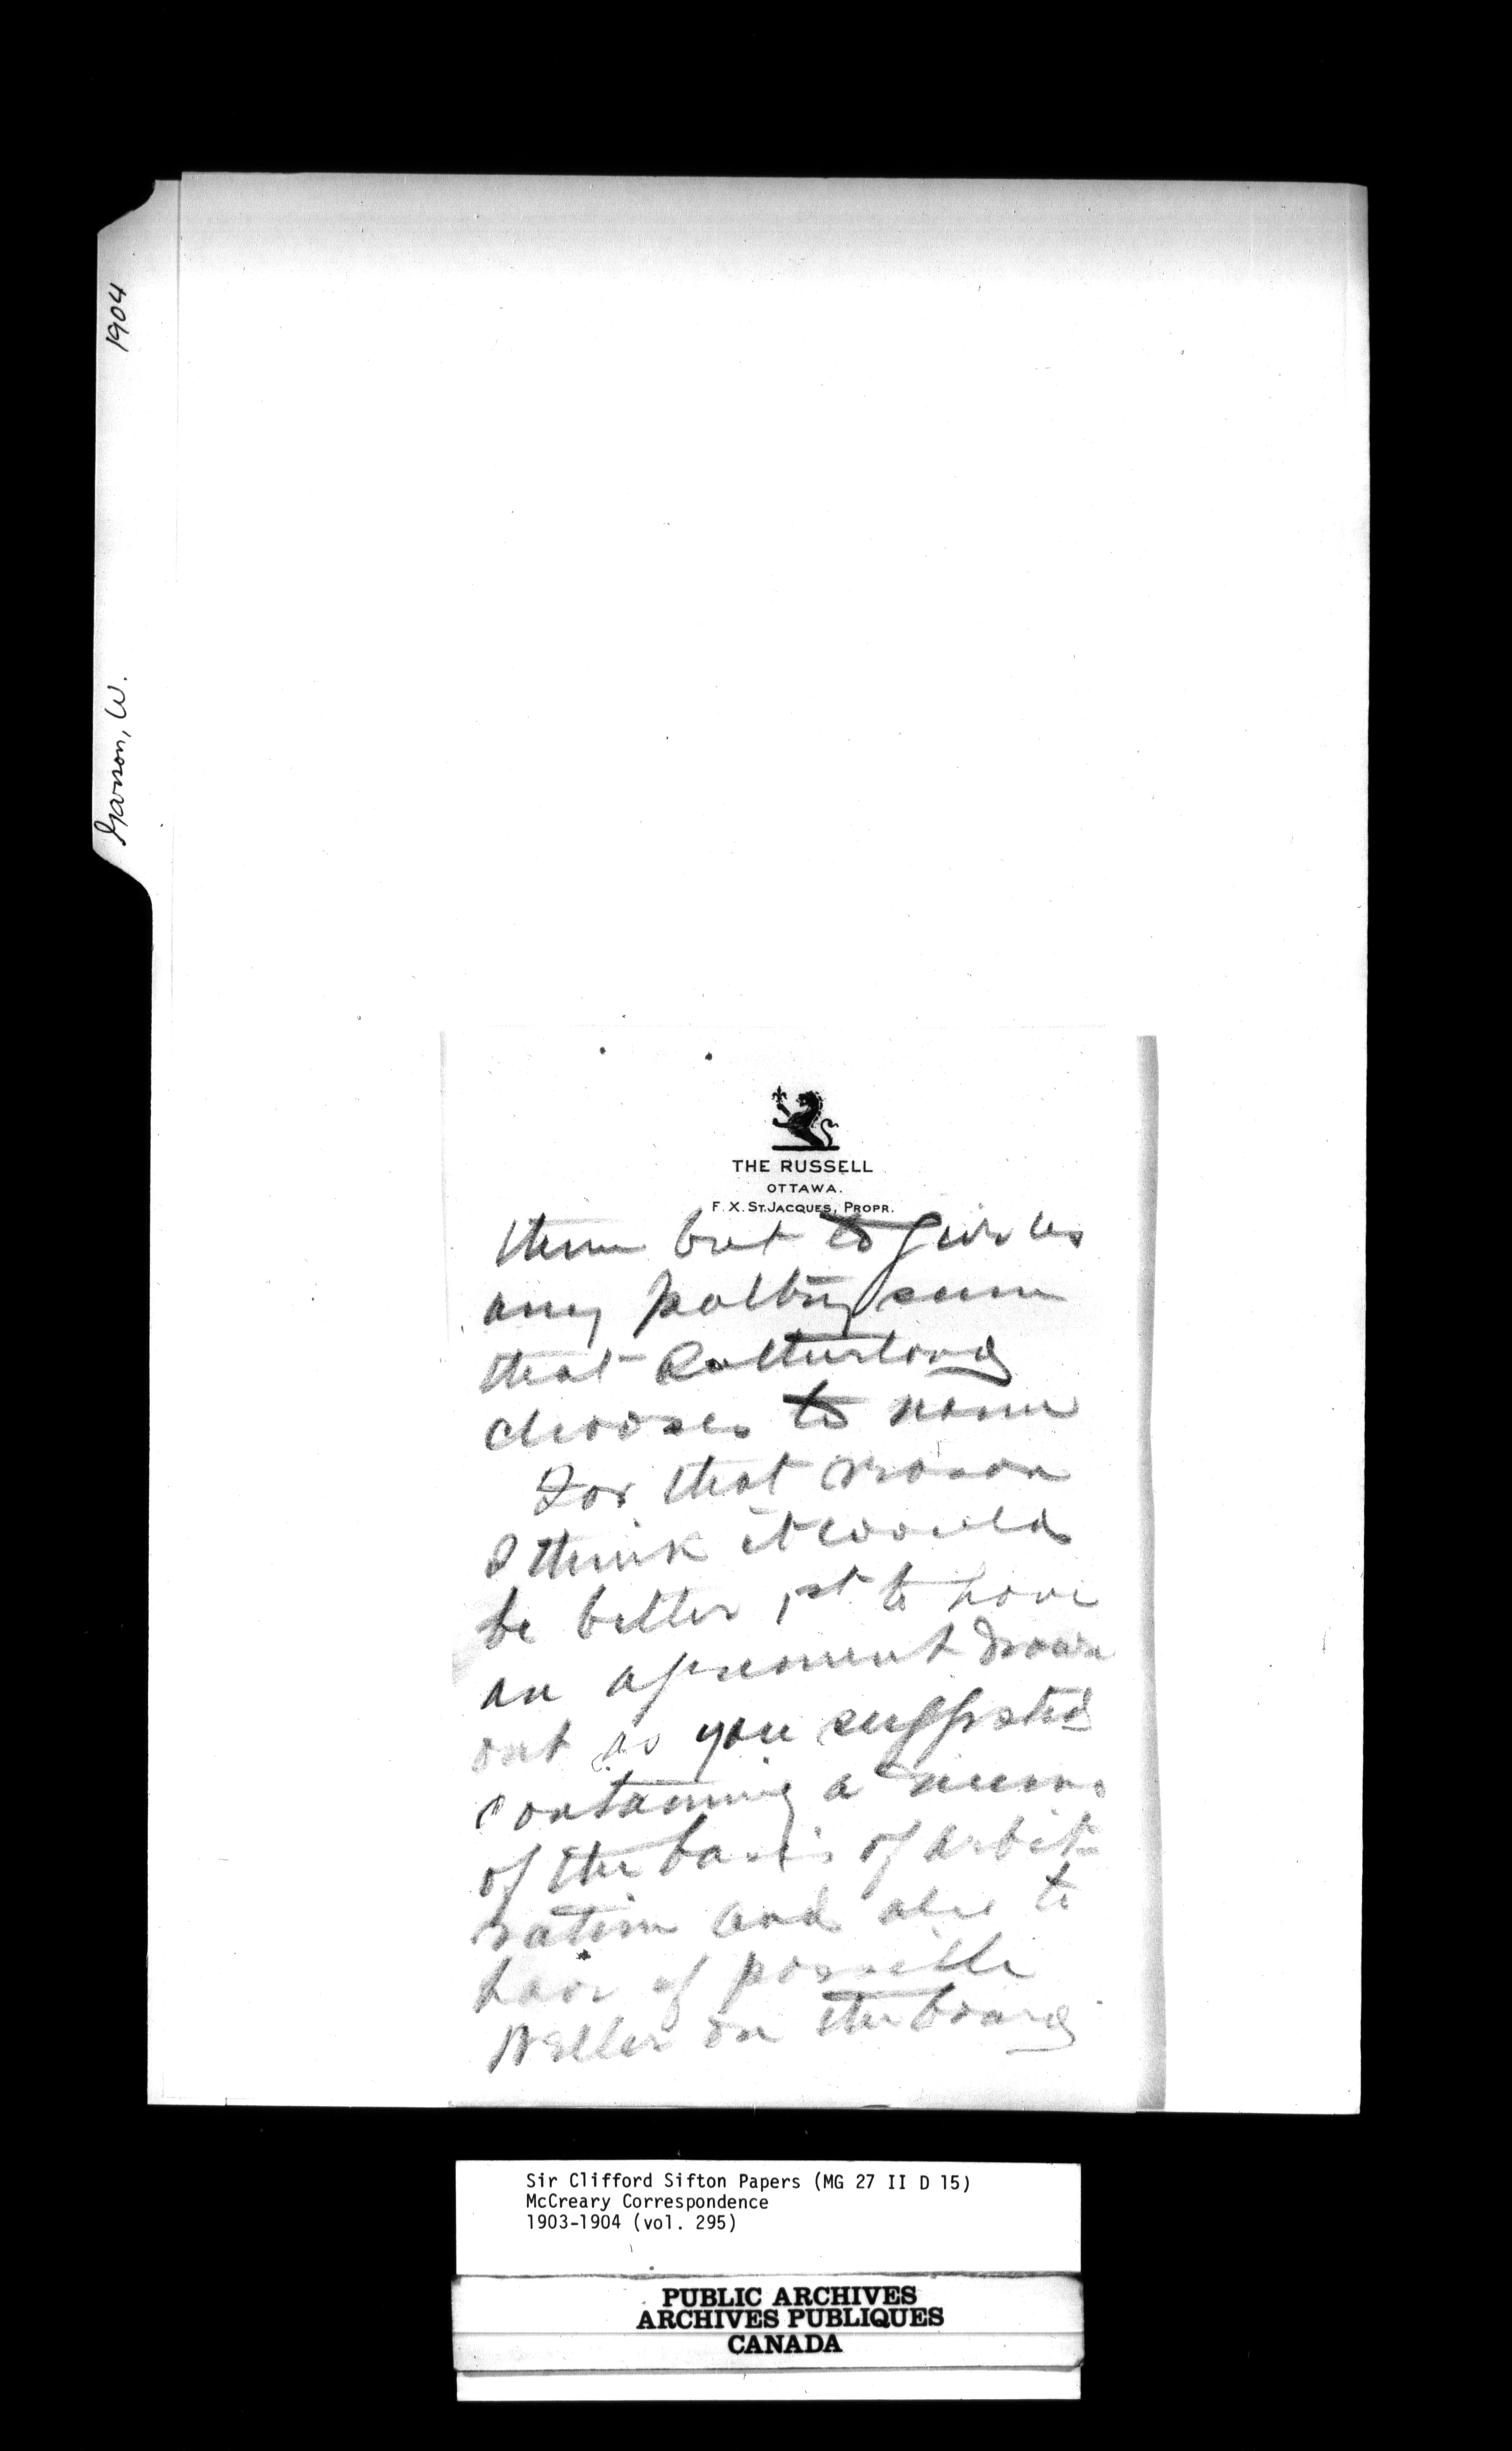 1904
Garson, W.
THE RUSSELL
OTTAWA.
F. X. ST. JACQUES, PROPR.
them but to give us
any paltry sum
that
chooses to name
For that reason
I think it would
be better 1st to have
an agreement drawn
out as you suggested
containing a
of the basis of arbit-
ration and also to
have if possible
Weller on the board
Sir Clifford Sifton Papers (MG 27 II D 15)
McCreary Correspondence
1903-1904 (vol. 295)
PUBLIC ARCHIVES
ARCHIVES PUBLIQUES
CANADA